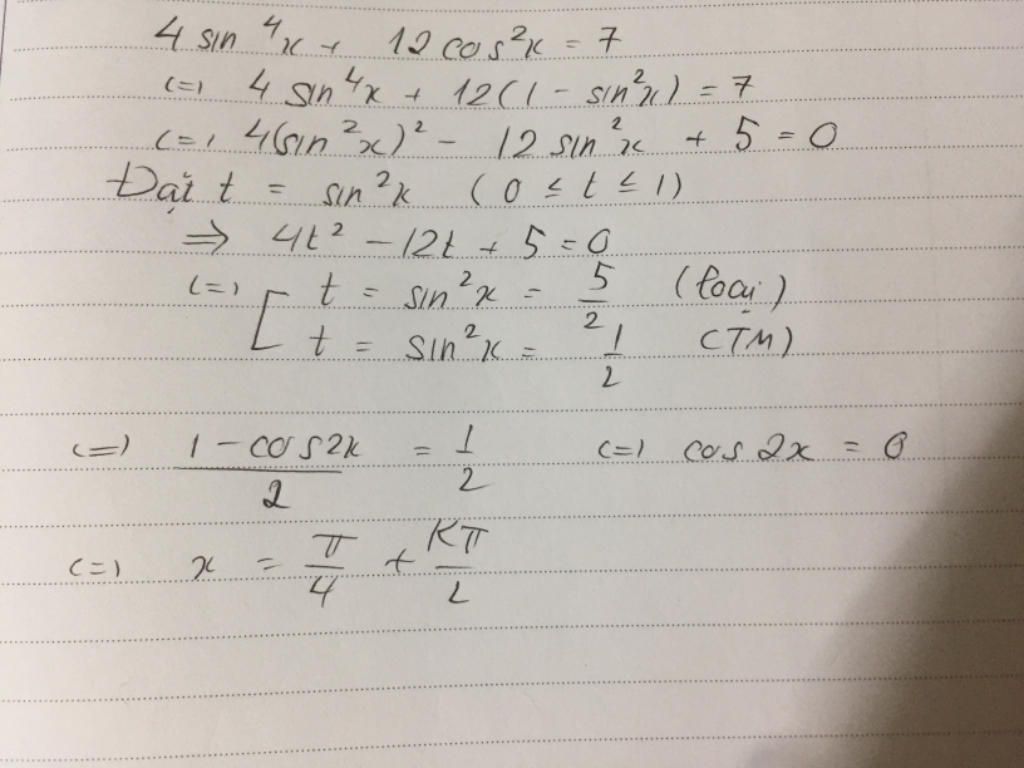 4 sin⁴x + 12 cos²x = 7
<=> 4 sin⁴x + 12(1 - sin²x) = 7
<=> 4(sin²x)² - 12 sin²x + 5 = 0
Đặt t = sin²x (0 ≤ t ≤ 1)
=> 4t² - 12t + 5 = 0
<=> [ t = sin²x = 5/2 (loại)
t = sin²x = 1/2 (TM)
<=> (1 - cos2x)/2 = 1/2 <=> cos 2x = 0
<=> x = π/4 + Kπ/2